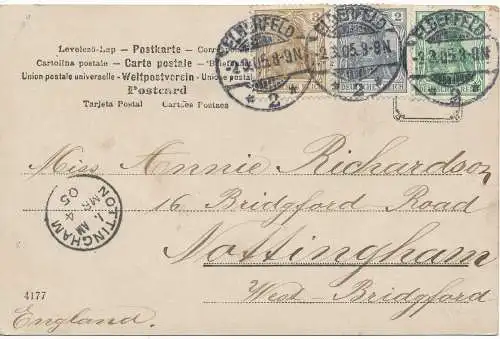 Levelező-Lap — Postkarte — Correspon
Cartolina postale — Carte postale —
Union postale universelle - Weltpostverein - Unione postale
Postcard
Tarjeta Postal Cartões Postaes
ELBERFELD
-2.3.05.8-9N
* 2 *
ELBERFELD
-2.3.05.8-9N
* 2 *
ELBERFELD
-2.3.05.8-9N
* 2 *
3
2
DEUTSCHES REICH
Miss Annie Richardson
16 Bridgford Road
Nottingham
West-Bridgford
England.
NOTTINGHAM
1. AM
MR 4
05
4177